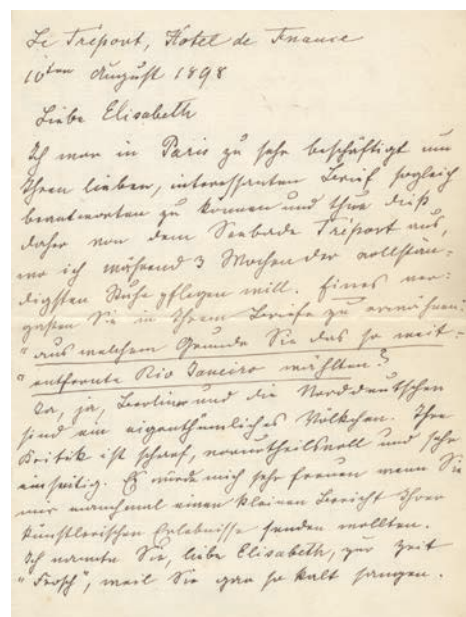 Le Tréport, Hotel de France
10ten August 1898
Liebe Elisabeth
Ich war in Paris zu sehr beschäftigt um
Ihren lieben, interessanten Brief sogleich
beantworten zu können und thue dieß
daher von dem Seebade Tréport aus,
wo ich während 3 Wochen der vollstän-
digsten Ruhe pflegen will. Eines ver-
gaßen Sie in Ihrem Briefe zu erwähnen:
"aus welchem Grunde Sie das so weit-
"entfernte Rio Janeiro wählten?
Ja, ja, Berlin und die Norddeutschen
sind ein eigenthümliches Völkchen. Ihre
Kritik ist scharf, vorurtheilsvoll und sehr
einseitig. Es würde mich sehr freuen wenn Sie
mir manchmal einen kleinen Bericht Ihrer
künstlerischen Erlebnisse senden wollten.
Ich nannte Sie, liebe Elisabeth, zur Zeit
"Frosch", weil Sie gar so kalt sangen.